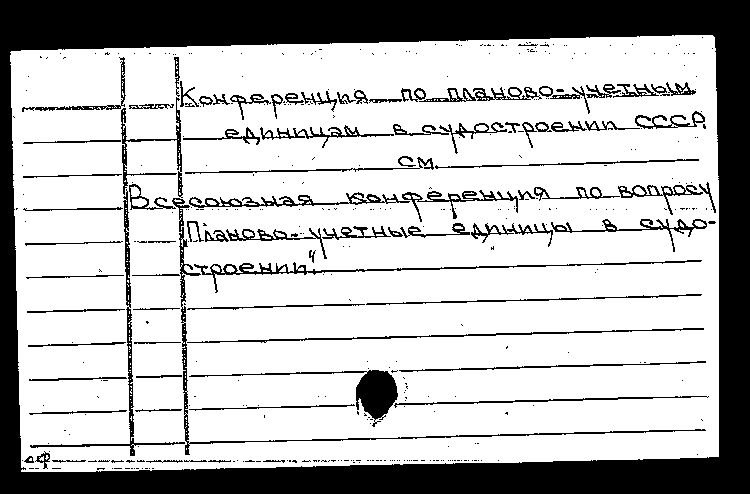 Конференция по планово-учетным
единицам в судостроении СССР
см.
Всесоюзная конференция по вопросу
Планово-учетные единицы в судо-
строении"